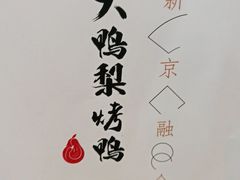 大鸭梨烤鸭
新京融